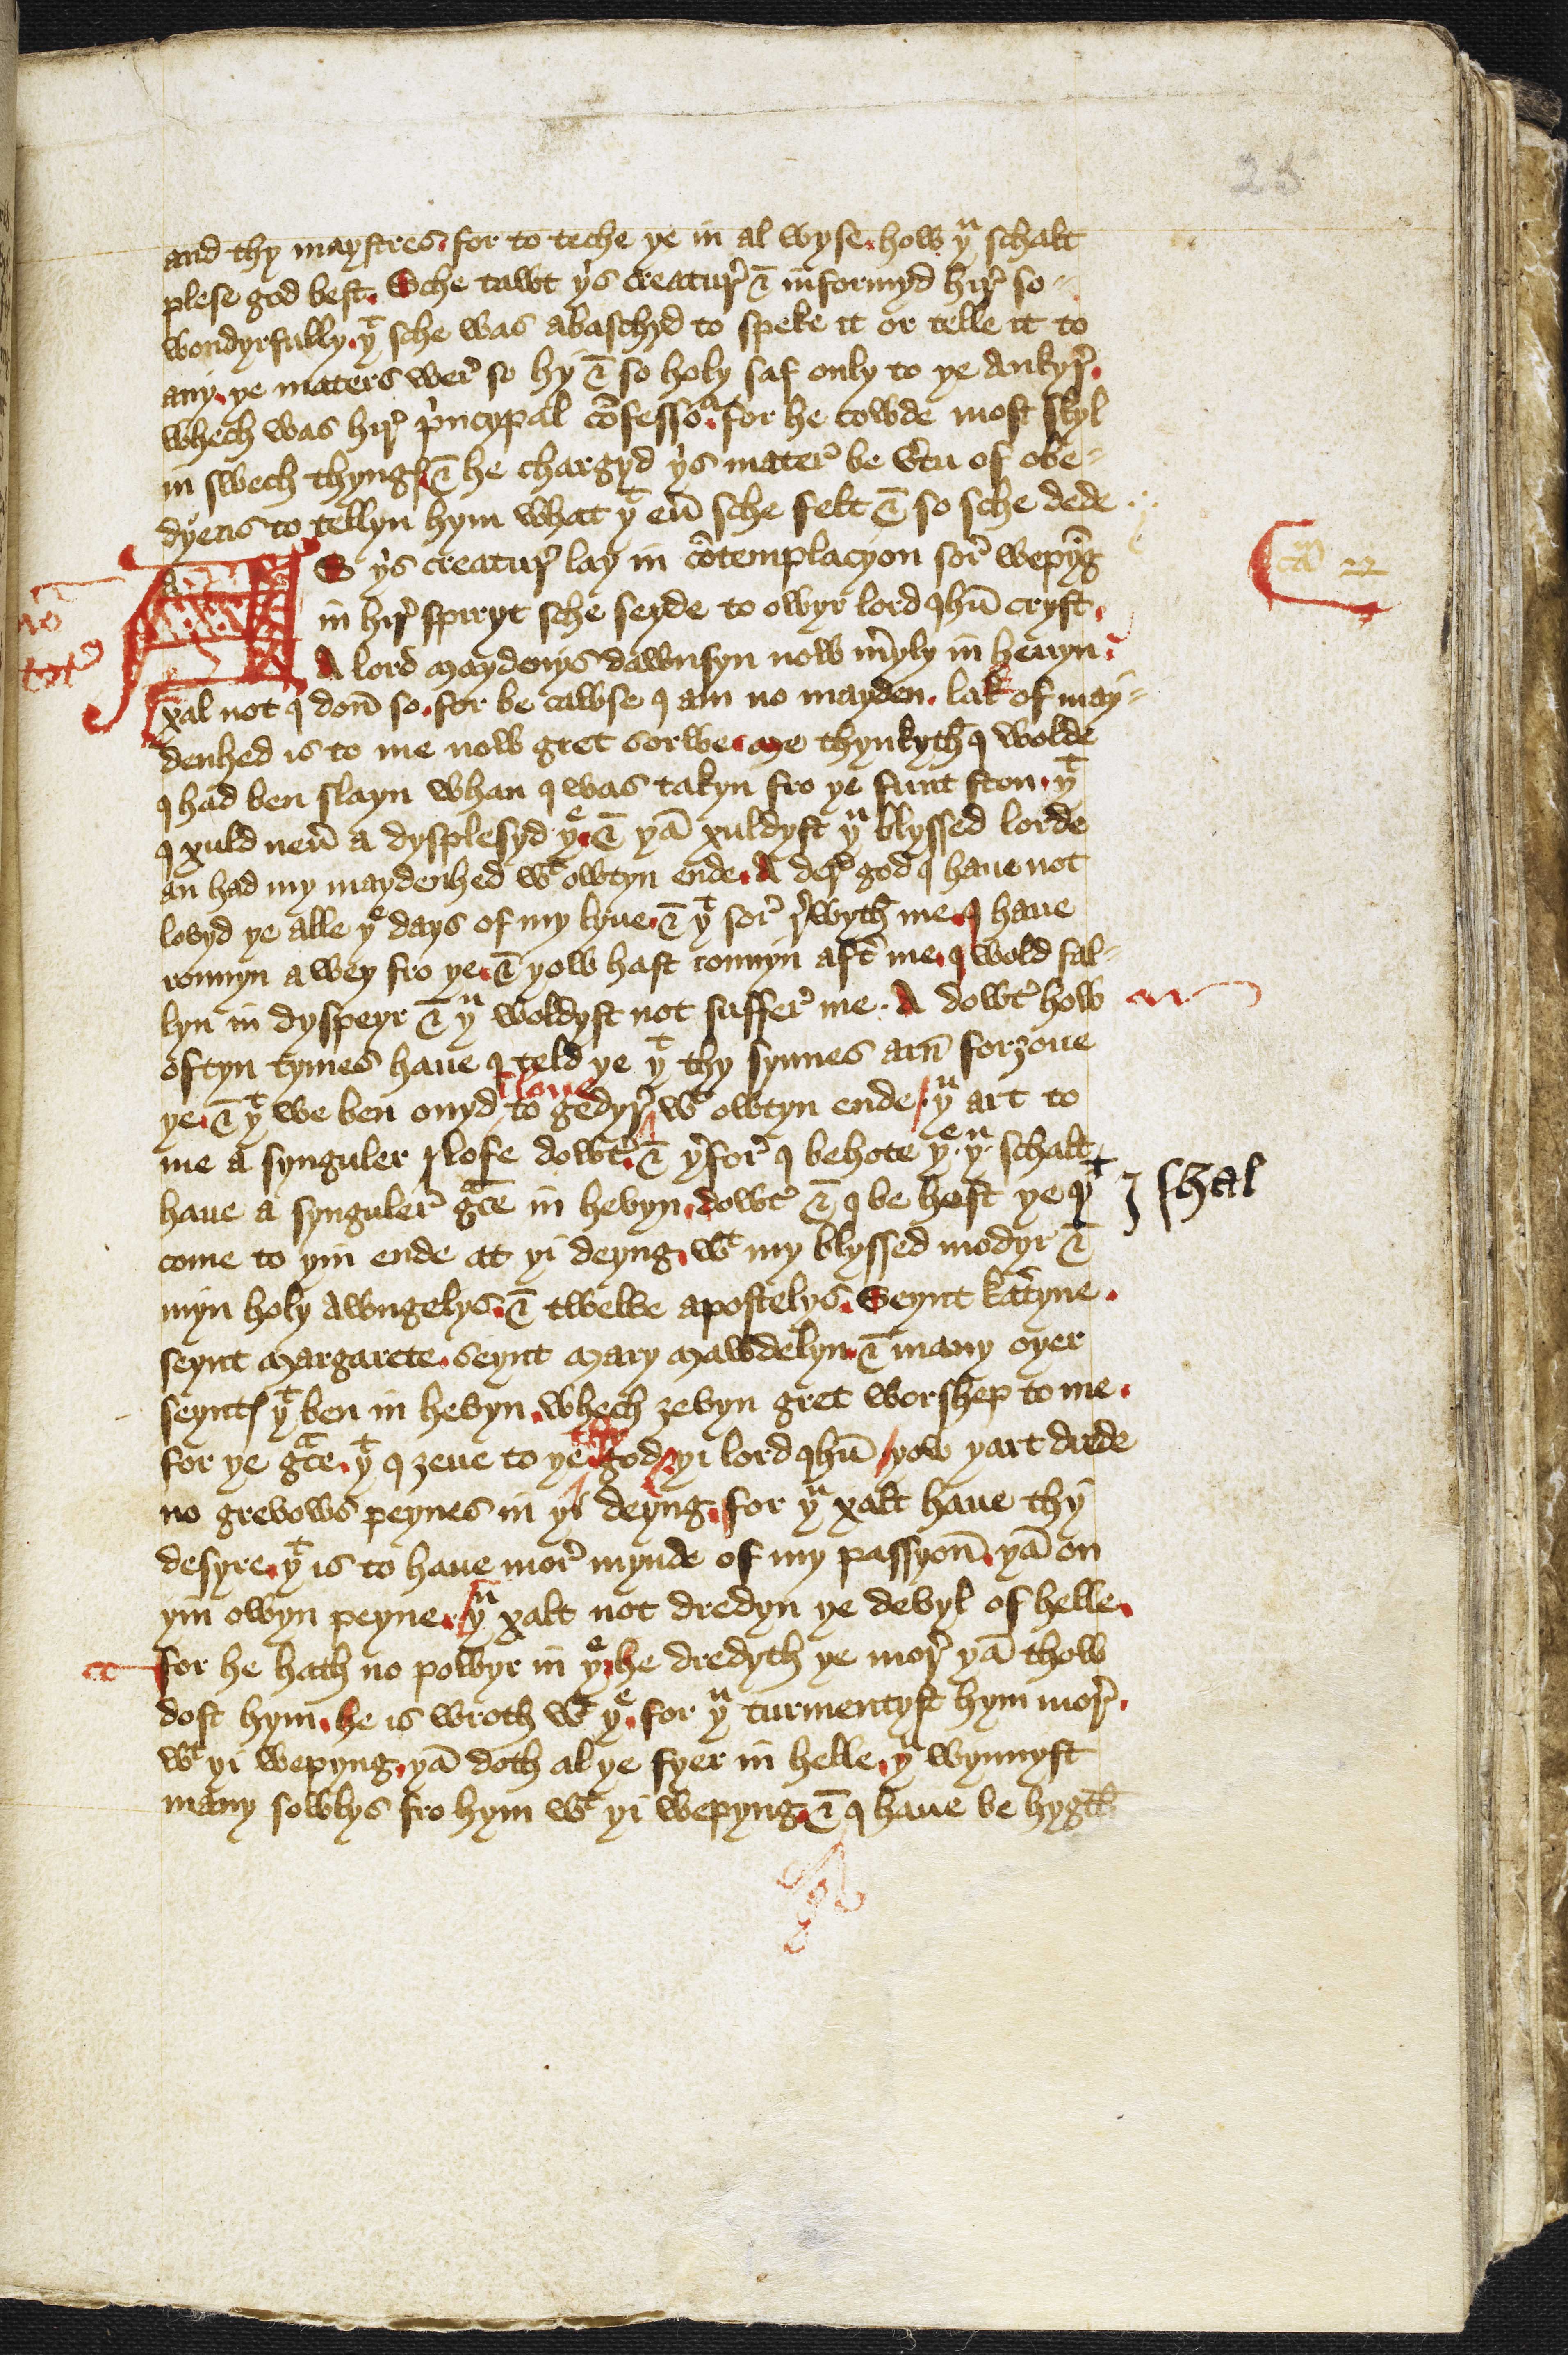 25
and thy maystres. for to teche ye in al wyse. how yͧ schalt
plese god best. Sche tawt yͥs creatur̛ & informyd hir̛ so-
wondyrfully. yͭ sche was abaschyd to speke it or telle it to
any. ye maters wer̛ so hy & so holy saf only to ye Ankyr̛.
whech was hir̛ pͥncypal cōfessoͬ. for he cowde most skyl
in swech thyngꝭ. & he chargyd yͥs mater̛ be v̛tu of obe-
dyēns to tellyn hym what yͭ eư sche felt & so sche dede
AS yͥs creatur̛ lay in cōtemplacyon sor̛ wepyg̃
caᵐ 22
in hir̛ spiryt sche seyde to owyr lord Ihū cryst.
no
A lord maydenys dawnsyn now m̛yly in heuyn.
xal not I don̄ so. for be cawse I am no mayden. lak of may-
denhed is to me now gret sorwe. me thynkyth I wolde
I had ben slayn whan I was takyn fro ye funt ston. yͭ
I xuld neư a dysplesyd yͤ. & yā xuldyst yͧ blyssed lorde
an had my maydenhed wͭ owtyn ende. A der̛ god I haue not
lovyd ye alle yͤ days of my lyue. & yͭ sor̛ r̛wyth me. I haue
ronnyn a wey fro ye. & yow hast ronnyn aft̛ me. I wold fal-
lyn in dyspeyr & yͧ woldyst not suffer̛ me. A dowt̛ how
oftyn tymes haue I teld ye yͭ thy synnes arn̄ forȝoue
ye. & yͭ we ben onyd to gedyr̛ wͭ owtyn ende yͧ art to
loue
me a synguler lofe dowt̛. & y̛for̛ I behote yͤ. yͧ schalt
haue a synguler̛ gͣce in hevyn. dowt̛ & I be hest ye yͭ
I shal
come to yin ende at yi deyng. wͭ my blyssed modyr &
myn holy Awngelys. & twelwe apostelys. Seynt Kat̛yne.
seynt Margarete. seynt Mary Mawdelyn. & many oyer
seyntꝭ yͭ ben in hevyn. whech ȝevyn gret worshep to me.
for ye gͣce. yͭ I ȝeue to ye. god yi lord Ihū yow yart drede
thy
no grevows peynes in yi deyng. for yͧ xalt haue thy
desyre. yͭ is to haue mor̛ mynde of my passyon̄. yā on
yin owyn peyne. yͧ xalt not dredyn ye devyl of helle.
for he hath no powyr in yͤ. he dredyth ye mor̛ yā thow
dost hym. he is wroth wͭ yͤ. for yͧ turmentyst hym mor̛.
wͭ yi wepyng. yā doth al ye fyer in helle. yͧ wynnyst
many sowlys fro hym wͭ yi wepyng. & I haue be hygth